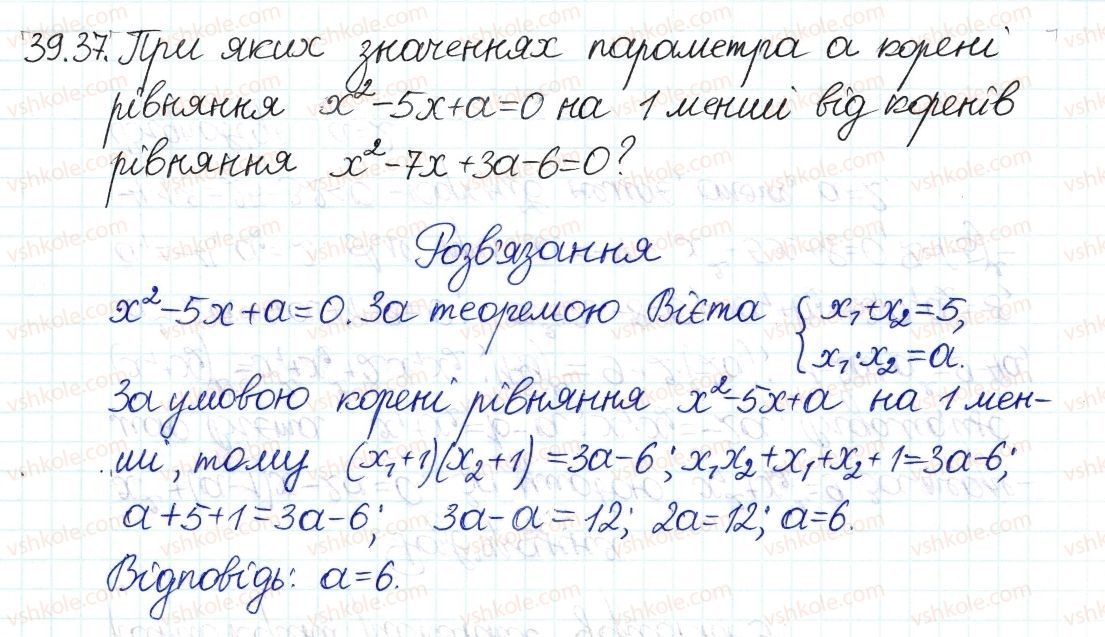 39.37. При яких значеннях параметра а корені
рівняння x²-5x+a=0 на 1 менші від коренів
рівняння x²-7x+3a-6=0?
Розв'язання
x²-5x+a=0. За теоремою Вієта { x₁+x₂=5,
x₁·x₂=a.
За умовою корені рівняння x²-5x+a на 1 мен-
ші, тому (x₁+1)(x₂+1)=3a-6; x₁x₂+x₁+x₂+1=3a-6;
a+5+1=3a-6; 3a-a=12; 2a=12; a=6.
Відповідь: a=6.